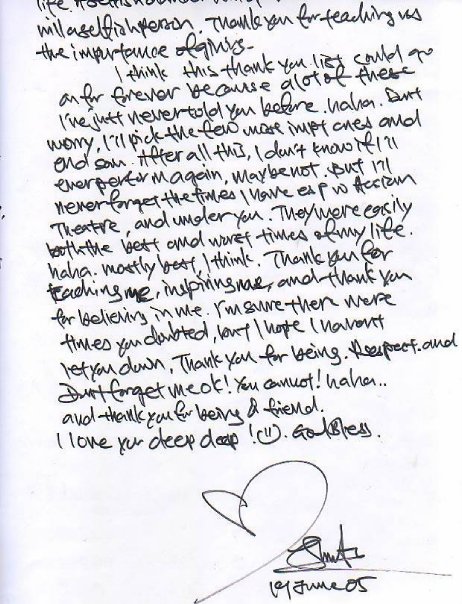 life.
unselfish person. Thank you for teaching us
the importance of giving.
I think this thank you list could go
on for forever because a lot of these
I've just never told you before. haha. Don't
worry, I'll pick the few more impt ones and
end soon. After all this, I don't know if I'll
ever perform again, maybe not. But I'll
never forget the times I have esp w Action
Theatre, and under you. They were easily
both the best and worst times of my life.
haha. mostly best, I think. Thank you for
teaching me, inspiring me, and thank you
for believing in me. I'm sure there were
times you doubted, but I hope I havent
let you down. Thank you for being. Respect. and
Dont forget me ok! You cannot! haha..
and thank you for being a friend.
I love you deep deep! God Bless.
19 June 05